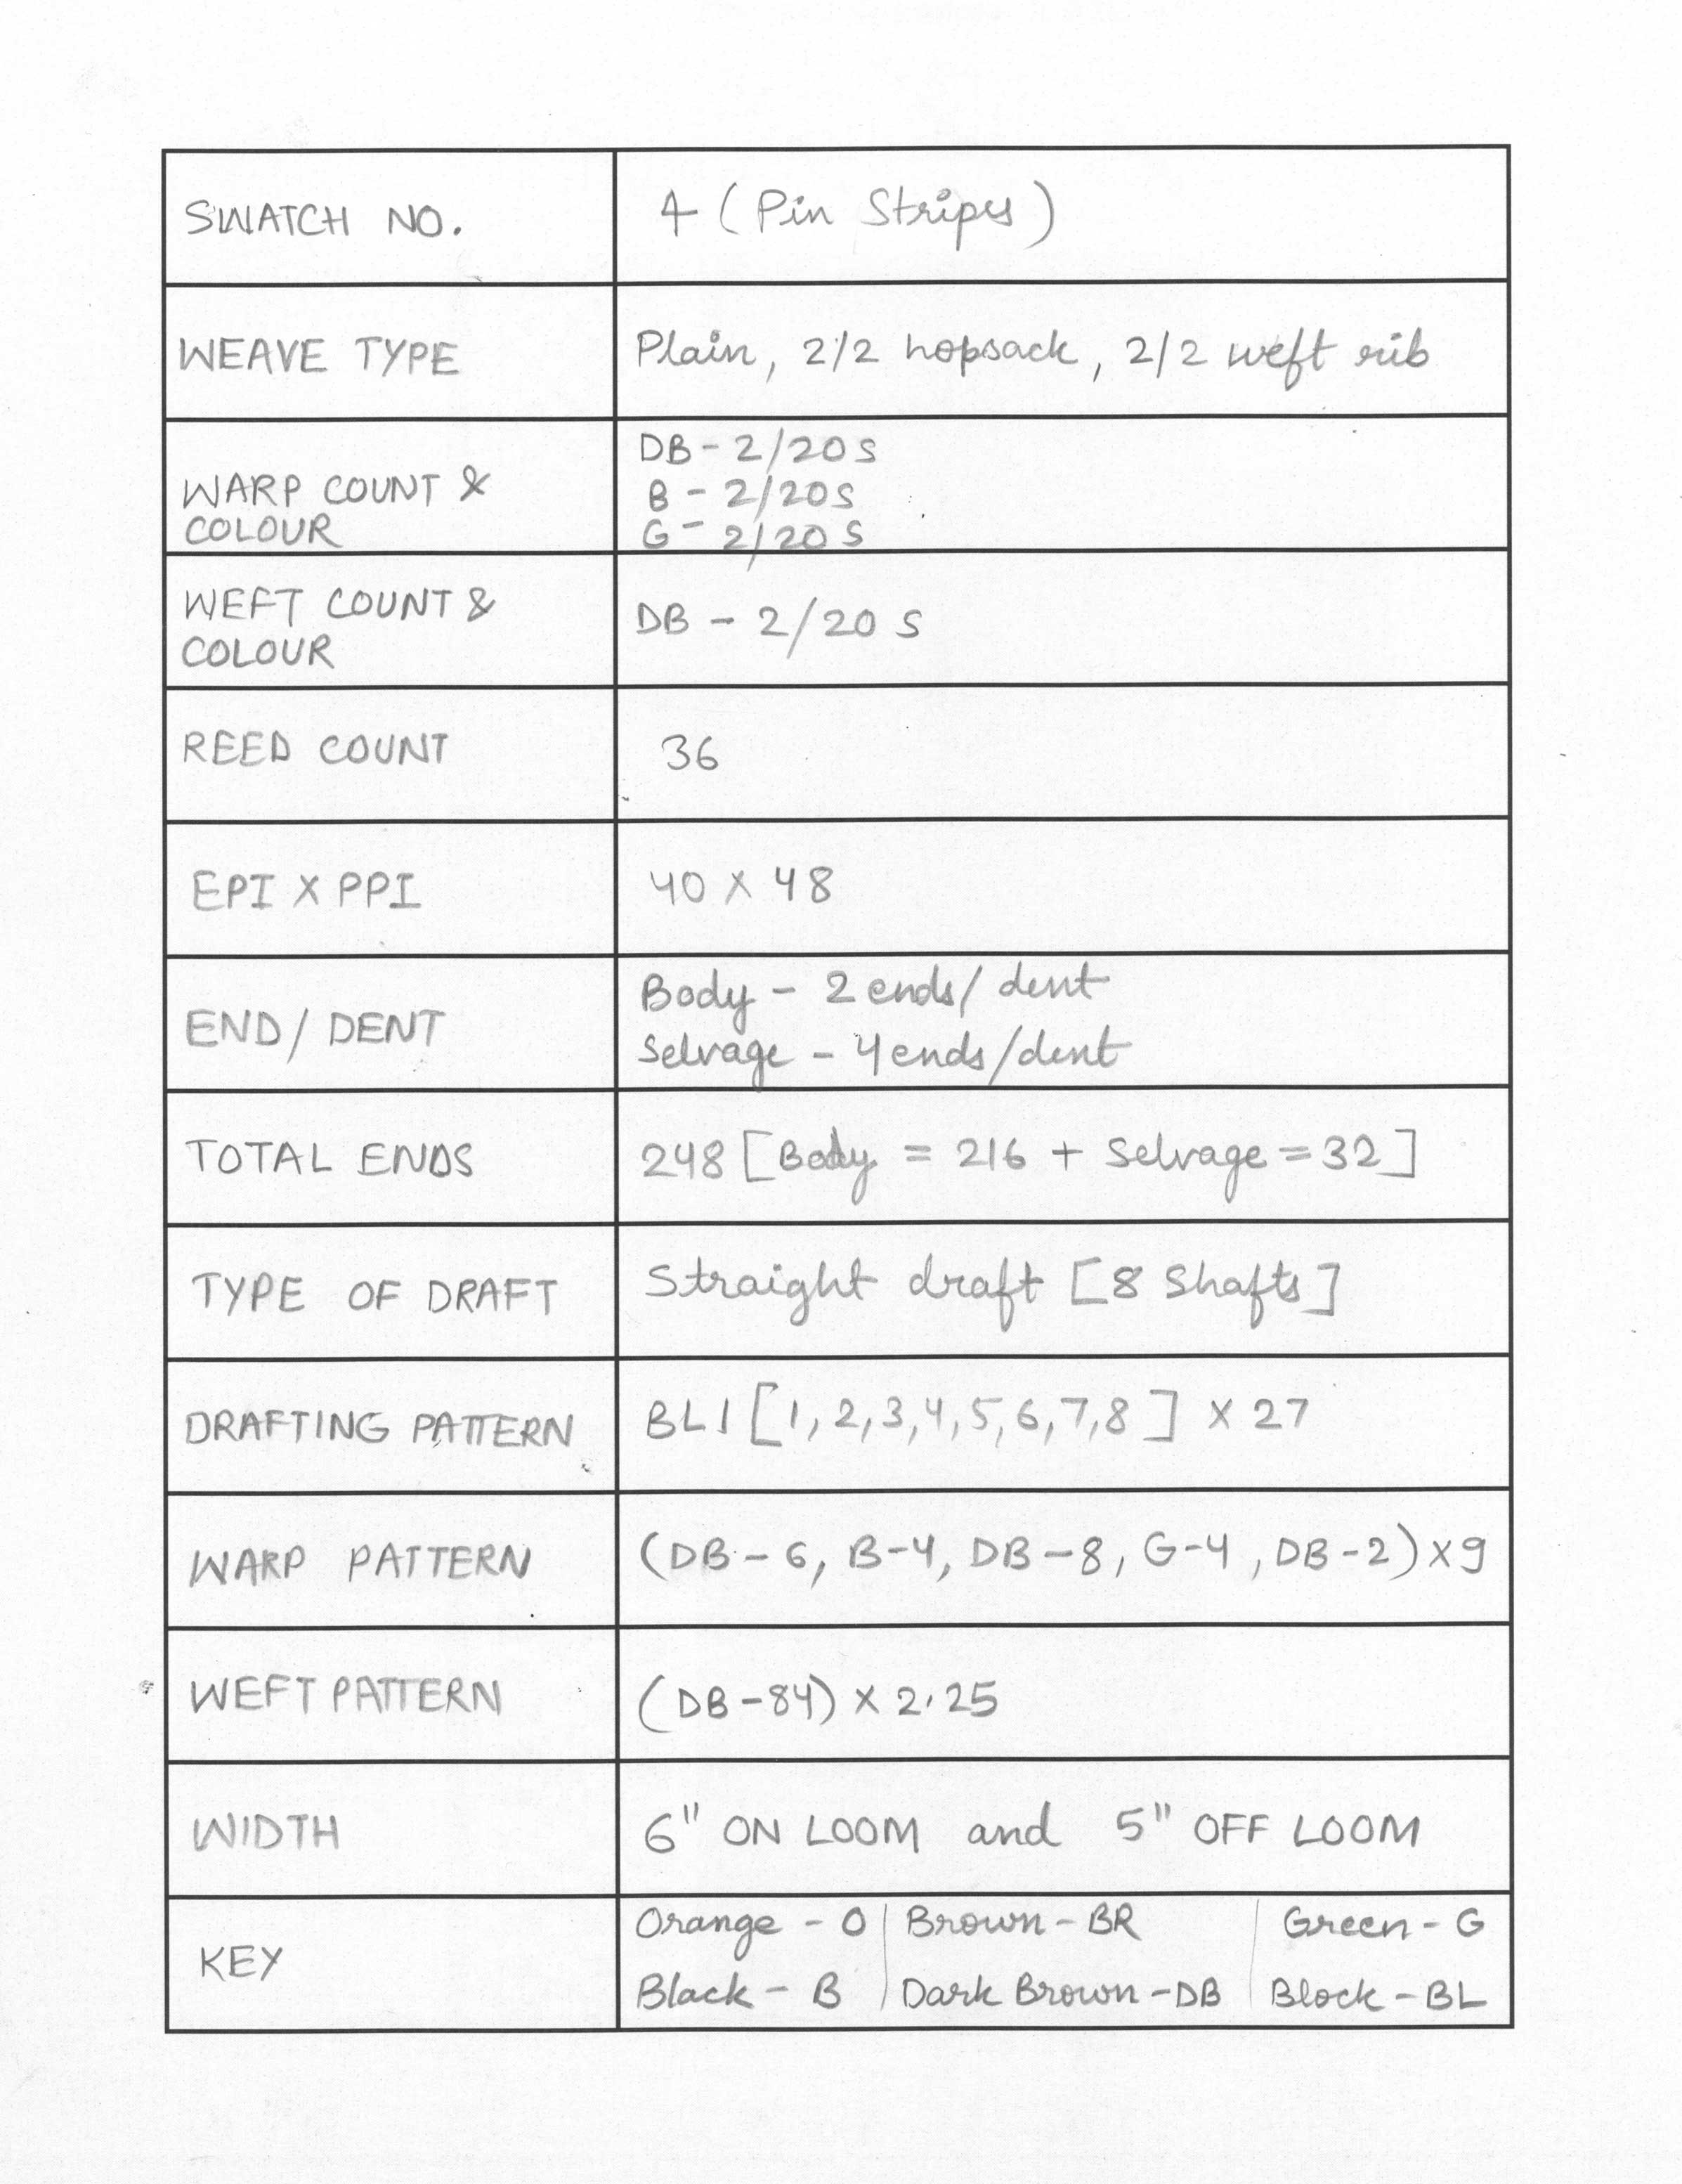 SWATCH NO.
4 (Pin Stripes)
WEAVE TYPE
Plain, 2/2 hopsack, 2/2 weft rib
WARP COUNT &
COLOUR
DB - 2/20 S
B - 2/20S
G - 2/20 S
WEFT COUNT &
COLOUR
DB - 2/20 S
REED COUNT
36
EPI X PPI
40 X 48
END/ DENT
Body - 2 ends/ dent
Selvage - 4 ends/dent
TOTAL ENDS
248 [Body = 216 + Selvage = 32]
TYPE OF DRAFT
Straight draft [8 Shafts]
DRAFTING PATTERN
BL1 [1, 2, 3, 4, 5, 6, 7, 8] X 27
WARP PATTERN
(DB - 6, B-4, DB - 8, G-4, DB-2) X 9
WEFT PATTERN
(DB - 84) X 2.25
WIDTH
6" ON LOOM and 5" OFF LOOM
KEY
Orange - O | Brown - BR | Green - G
Black - B | Dark Brown - DB | Block - BL